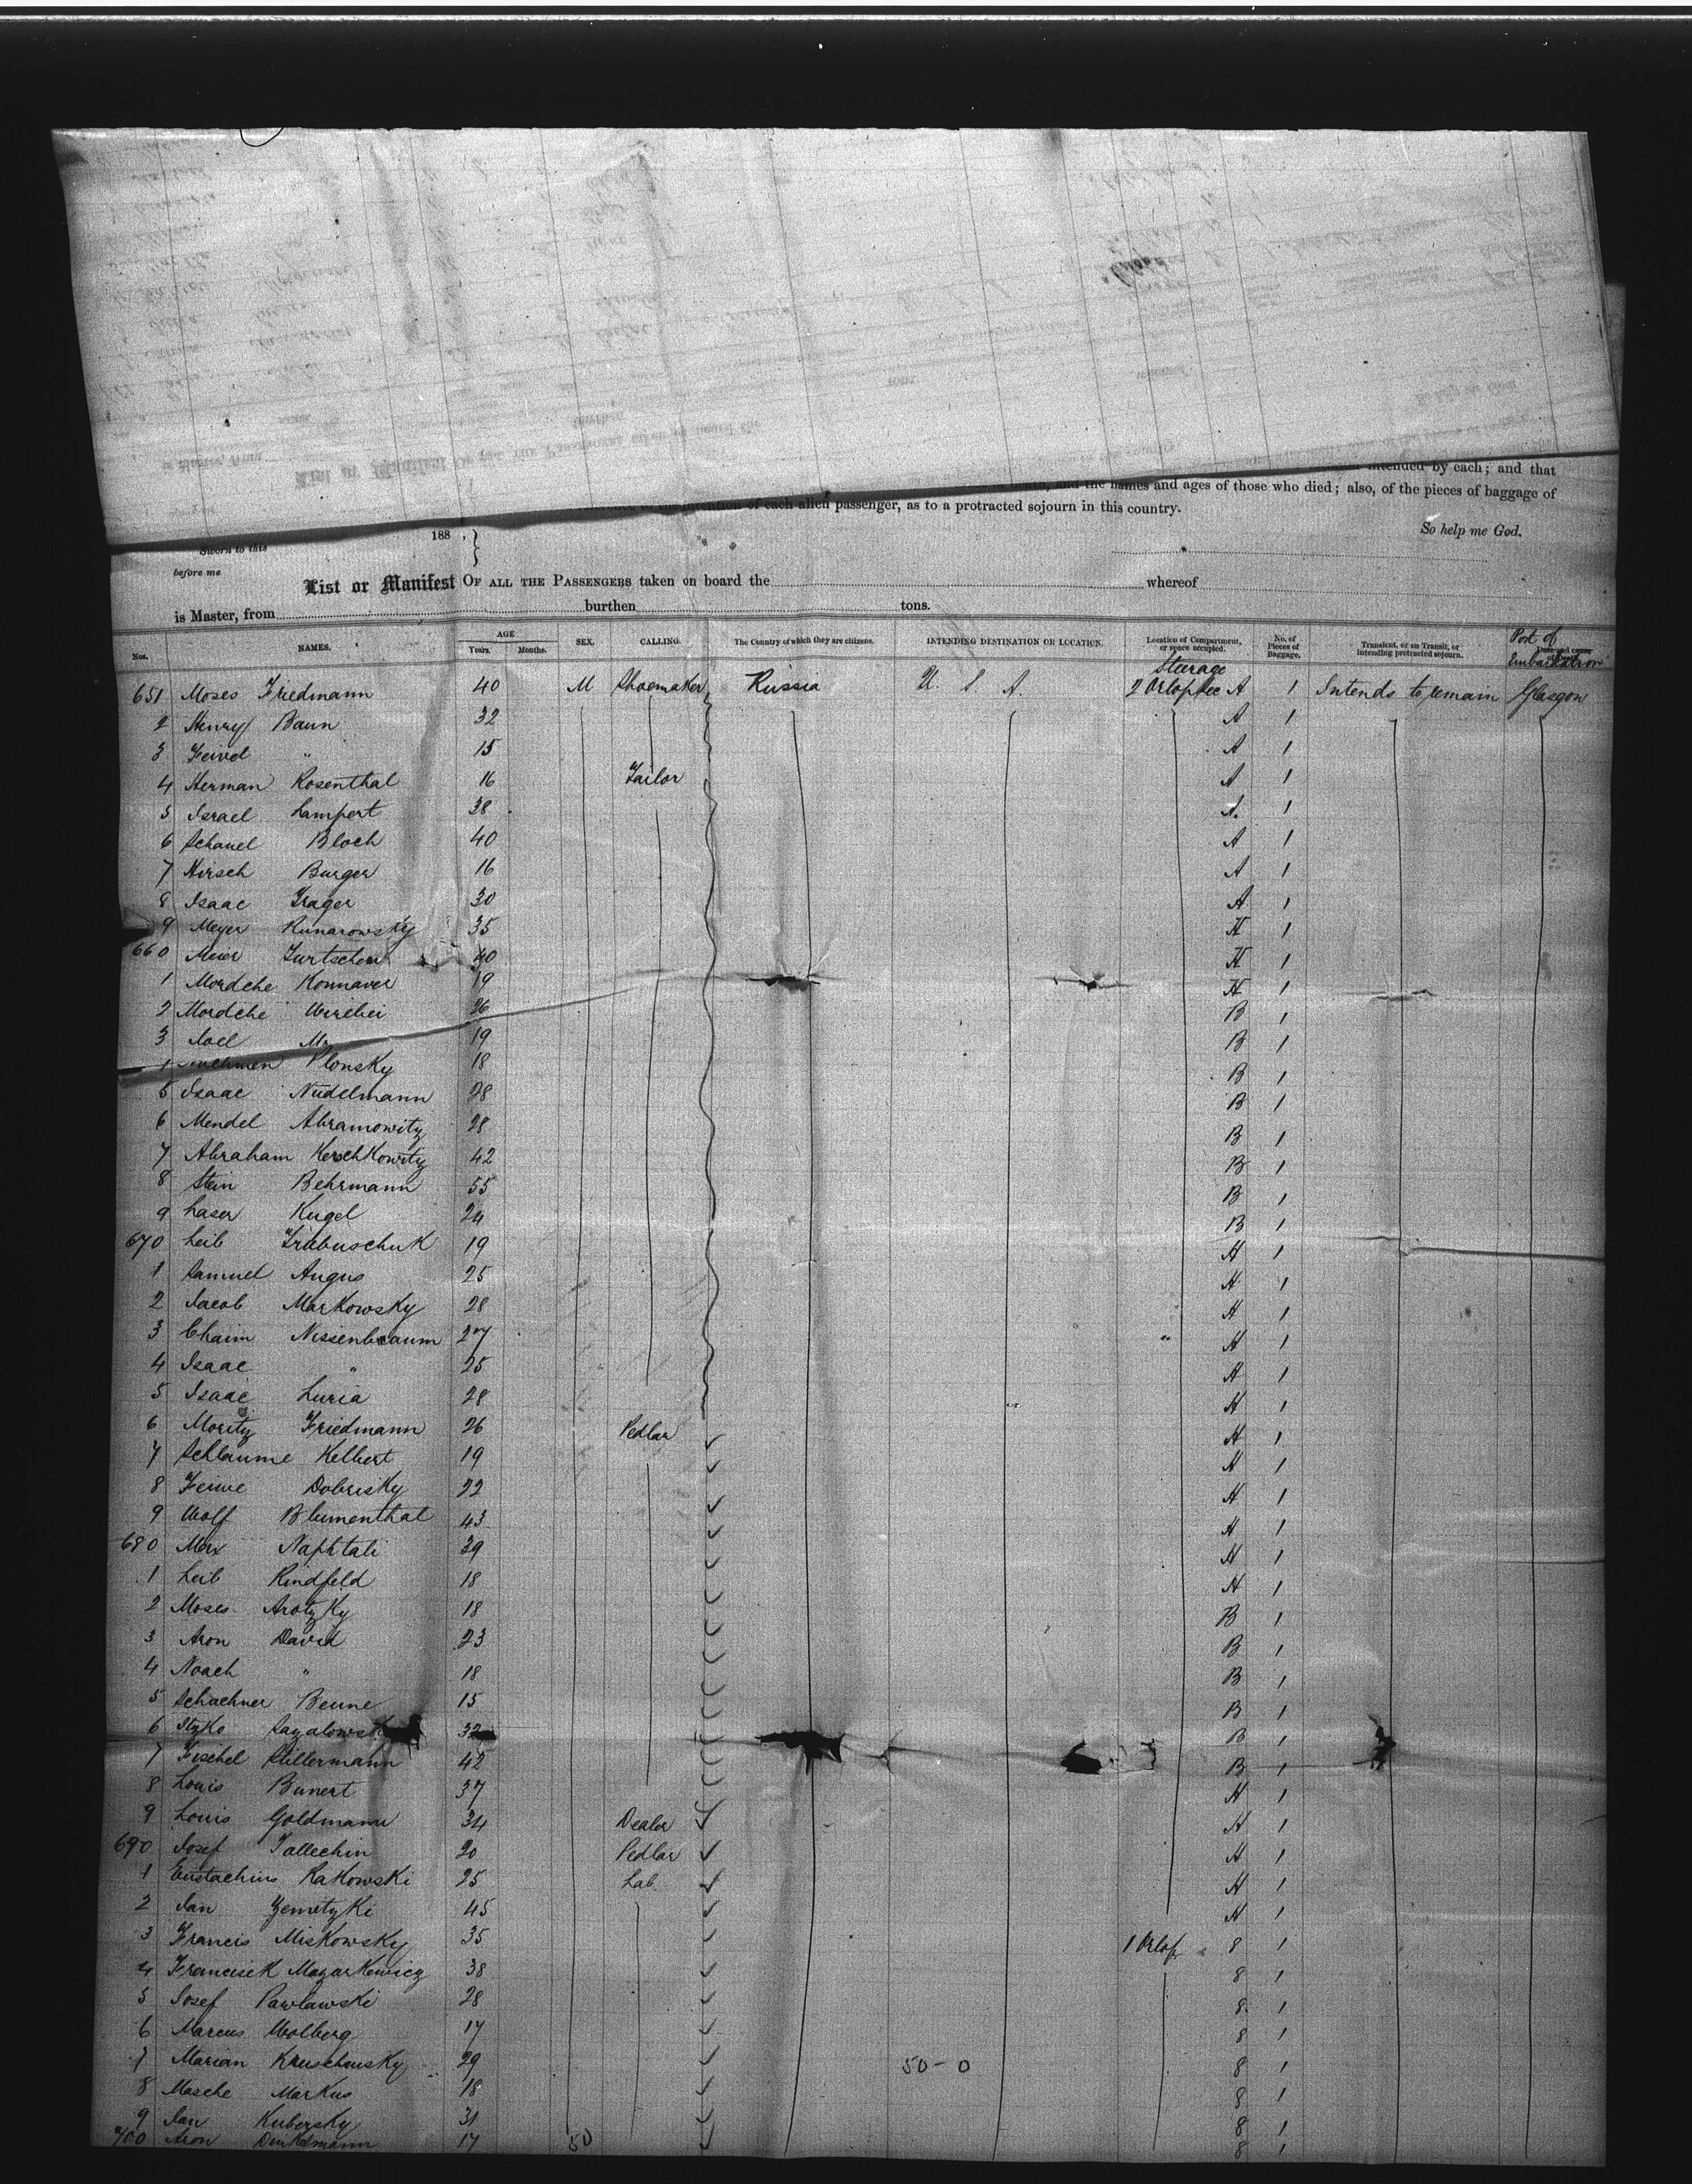 intended by each; and that
and the names and ages of those who died; also, of the pieces of baggage of
of each alien passenger, as to a protracted sojourn in this country.
So help me God.
Sworn to this 188 ,
before me
List or Manifest OF ALL THE PASSENGERS taken on board the whereof
is Master, from burthen tons.
Nos. NAMES. AGE Years. Months. SEX. CALLING. The Country of which they are citizens. INTENDING DESTINATION OR LOCATION. Location of Compartment, or space occupied. No. of Pieces of Baggage. Transient, or on Transit, or intending protracted sojourn. Port of Embarkation
Steerage
651 Moses Friedmann 40 M Shoemaker Russia U. S. A. 2 Orlop A 1 Intends to remain Glasgow
2 Henry Baun 32 A 1
3 Feivel " 15 A 1
4 Herman Rosenthal 16 Tailor A 1
5 Israel Lampert 38 A 1
6 Schauel Bloch 40 A 1
7 Hirsch Burger 16 A 1
8 Isaac Trager 30 A 1
9 Meyer Kunarowsky 35 H 1
660 Meier 40 H 1
1 Mordche Konnaver 19 H 1
2 Mordche 26 B 1
3 Joel 19 B 1
Plonsky 18 B 1
5 Isaac Nudelmann 28 B 1
6 Mendel Abramowitz 28 B 1
7 Abraham Kerschkowitz 42 B 1
8 Stein Behrmann 55 B 1
9 Laser Kugel 24 B 1
670 Leib Trubuschuk 19 H 1
1 Samuel Angus 25 H 1
2 Jacob Markowsky 28 H 1
3 Chaim Nissenbaum 27 " H 1
4 Isaac " 25 H 1
5 Isaac Luria 28 H 1
6 Moritz Friedmann 26 Pedlar H 1
7 Schlaume Kelbert 19 H 1
8 Feiwe Dobrisky 22 H 1
9 Wolf Blumenthal 43 H 1
680 Max Naphtali 39 H 1
1 Leib Rindfeld 18 H 1
2 Moses Arotzky 18 B 1
3 Aron David 23 B 1
4 Noach " 18 B 1
5 Schachner Beune 15 B 1
6 Itzko 32 B 1
7 Fischel Stillermann 42 B 1
8 Louis Bunert 37 H 1
9 Louis Goldmann 34 Dealer H 1
690 Josef Tallechin 20 Pedlar H 1
1 Eustachius Rakowski 25 Lab. H 1
2 Jan Zemetzki 45 H 1
3 Francis Miskowsky 35 1 Orlop 8 1
4 Francisek Mazarkewicz 38 8 1
5 Josef Pawlawski 28 8 1
6 Marcus Wolberg 17 8 1
7 Marian Kruschwsky 29 50-0 8 1
8 Mosche Markus 18 8 1
9 Jan Kubersky 31 8 1
700 Aron Dinkelmann 17 50 8 1